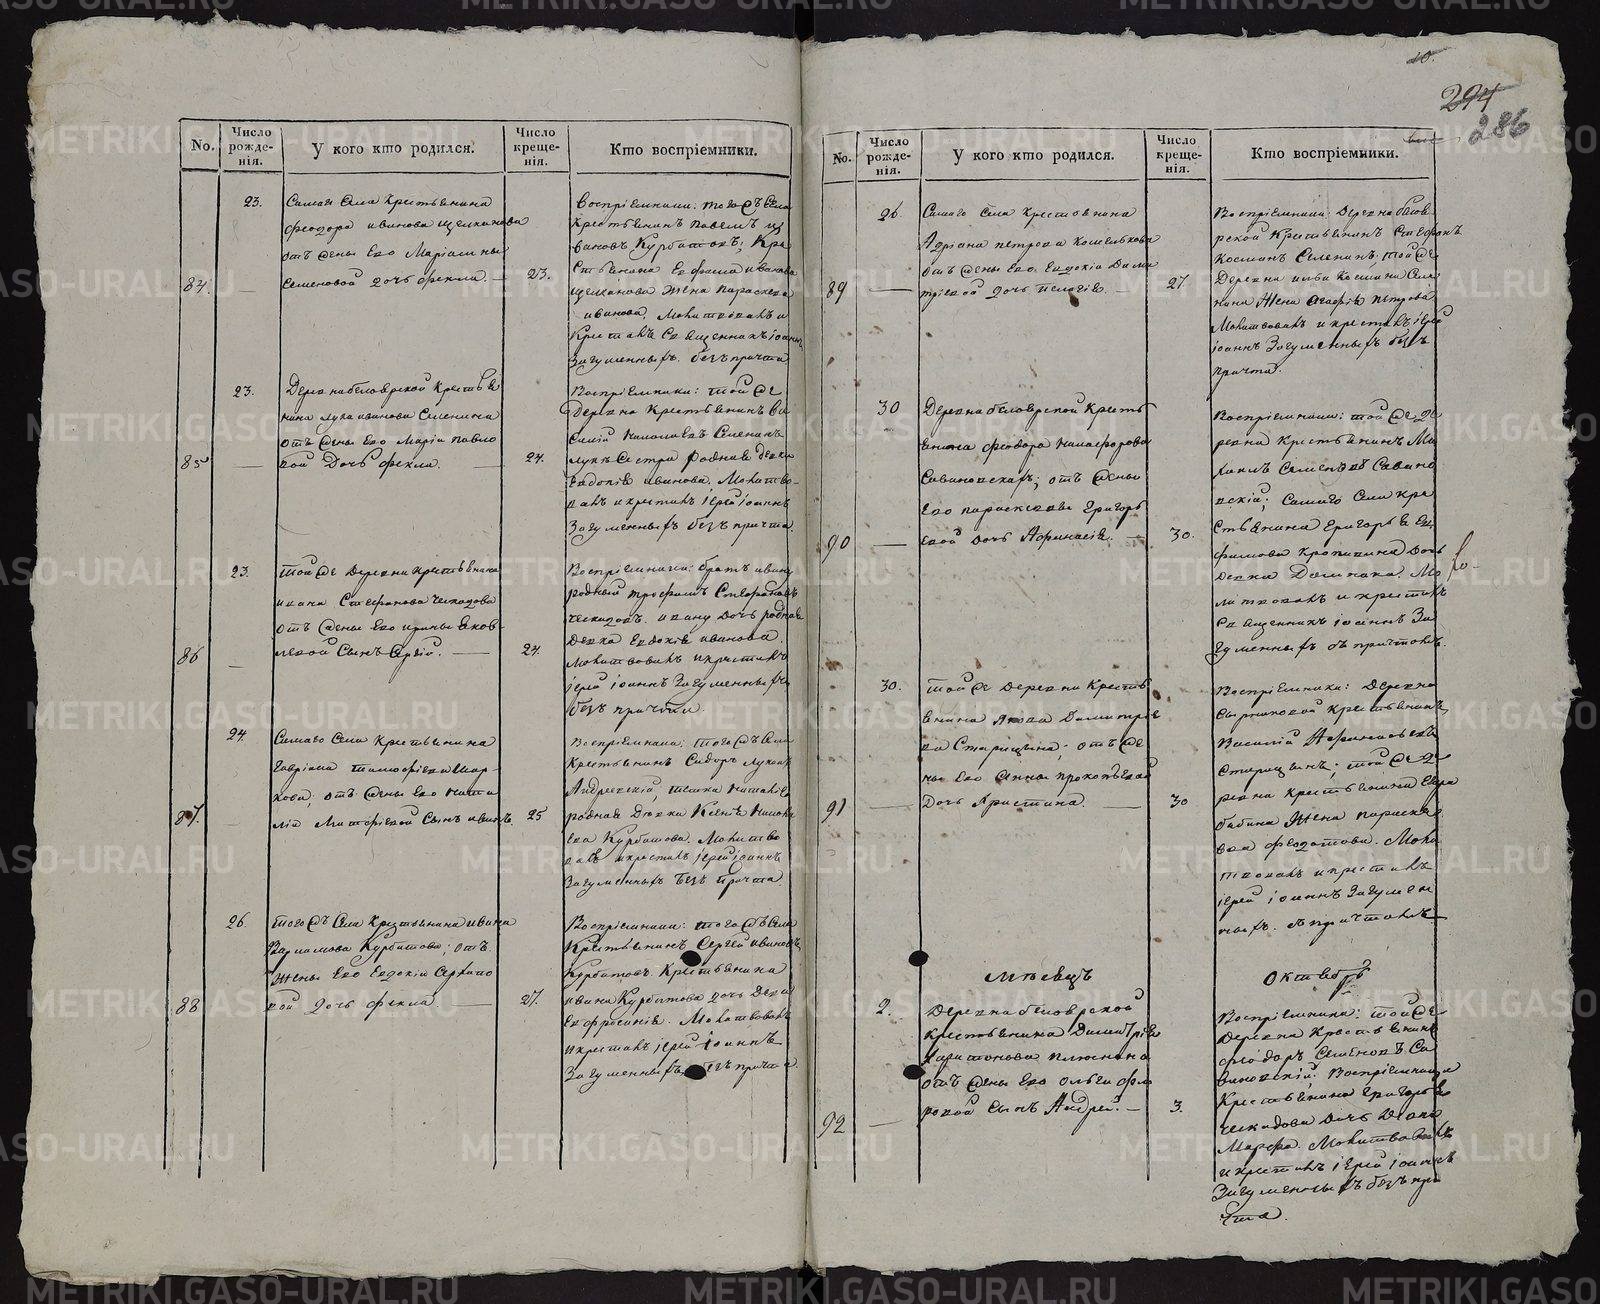 10.
294
286
No.
Число рожде-нія.
У кого кто родился.
Число креще-нія.
Кто воспріемники.
23.
Самаго села Крестьянина
феодора иванова щелканова
отъ жены Его Маріамны
84. Семеновой дочь фекла. 23.
Воспріемники: того жъ села
Крестьянинъ павелъ и
вановъ Курбатовъ; Кре
стьянина Ефима иванова
щелканова жена параскева
иванова. Молитвовалъ и
Крестилъ Священникъ іоаннъ
Загуменныхъ. безъ причта
23. Деревни беловрской Крестья
нина луки иванова Селенина
отъ жены Его Маріи павло
85 вой Дочь фекла. 24.
Воспріемники: той же
Деревни Крестьянинъ Ва
силій николаевъ Селенинъ
луки Сестра родная девка
Евдокія иванова. Молитво-
валъ и крестилъ іерей іоаннъ
Загуменныхъ безъ причта.
23. той же Деревни крестьянина
ивана Стефанова Чекадова
отъ жены Его ирины Яков-
86 левой Сынъ Сергій. 24.
Воспріемники: братъ ивану
родный трофимъ Стефановъ
ивану дочь родная
девка Евдокія иванова.
Молитвовалъ и крестилъ
іерей іоаннъ Загуменныхъ
безъ причта.
24. Самаго Села Крестьянина
Гавріила тимофіева
отъ жены Его ната
87. ліи Сынъ иванъ. 25
Воспріемники: того жъ села
Крестьянинъ Сидоръ
родная Девка Ксенія
Курбатова. Молитво
валъ и крестилъ іерей іоаннъ
Загуменныхъ Безъ Причта.
26. того жъ Села Крестьянина ивана
Варламова Курбатова; отъ
жены Его Евдокіи
88 вой дочь фекла. 27.
Воспріемники: того жъ села
Крестьянинъ Сергей ивановъ
Курбатовъ. Крестьянина
ивана Курбатова дочь Девка
Евфросинія. Молитвовалъ
и крестилъ іерей іоаннъ
Загуменныхъ. безъ причта.
No.
Число рожде-нія.
У кого кто родился.
Число креще-нія.
Кто воспріемники.
26. Самаго Села Крестьянина
Адріана петрова Кошелькова
отъ жены Его Евдокіи Дими
89 тріевой дочь пелагія. 27.
Воспріемники Деревни белов
рской Крестьянинъ Стефанъ
Косминъ Селенинъ; той же
Деревни ильи Космина Селе
нина жена Агафія петрова
Молитвовалъ и крестилъ іерей
іоаннъ Загуменныхъ безъ
причта.
30 Деревни беловрской Кресть
янина феодора никифорова
Савиновскахъ; отъ жены
Его параскевы Григорь
90 евой дочь Афанасія. 30.
Воспріемники: той же де
ревни Крестьянинъ Ми
хаилъ Семеновъ Савино
вскій; Самаго Села Кре
стьянина Григорья Еф
фимова Кропинина дочь
девка Домника. Мо
литвовалъ и крестилъ
Священникъ іоаннъ За
гуменныхъ съ причтомъ.
30. той же деревни Кресть
янина Якова Димитріе
ва Старицына; отъ же
ны Его Анны прокопьевой
91 Дочь Христина. 30
Воспріемники: Деревни
Крестьянинъ
Василій Афанасьевъ
Старицынъ; той же де
ревни крестьянина
бабина жена параске
ва федотова. Моли
твовалъ и крестилъ
іерей іоаннъ Загумен
ныхъ. съ причтомъ
Мѣсяцъ Октябрь
2. Деревни беловрской
крестьянина Димитрія
Харитонова плюснина
отъ жены Его ольги фло
92 ровой сынъ Андрей. 3.
Воспріемники: той же
Деревни Крестьянинъ
феодоръ Семеновъ Са
виновскій; Воспріемница
Крестьянина Григорья
Чекадова дочь Девка
Марфа. Молитвовалъ
и крестилъ іерей іоаннъ
Загуменныхъ безъ при
чта.